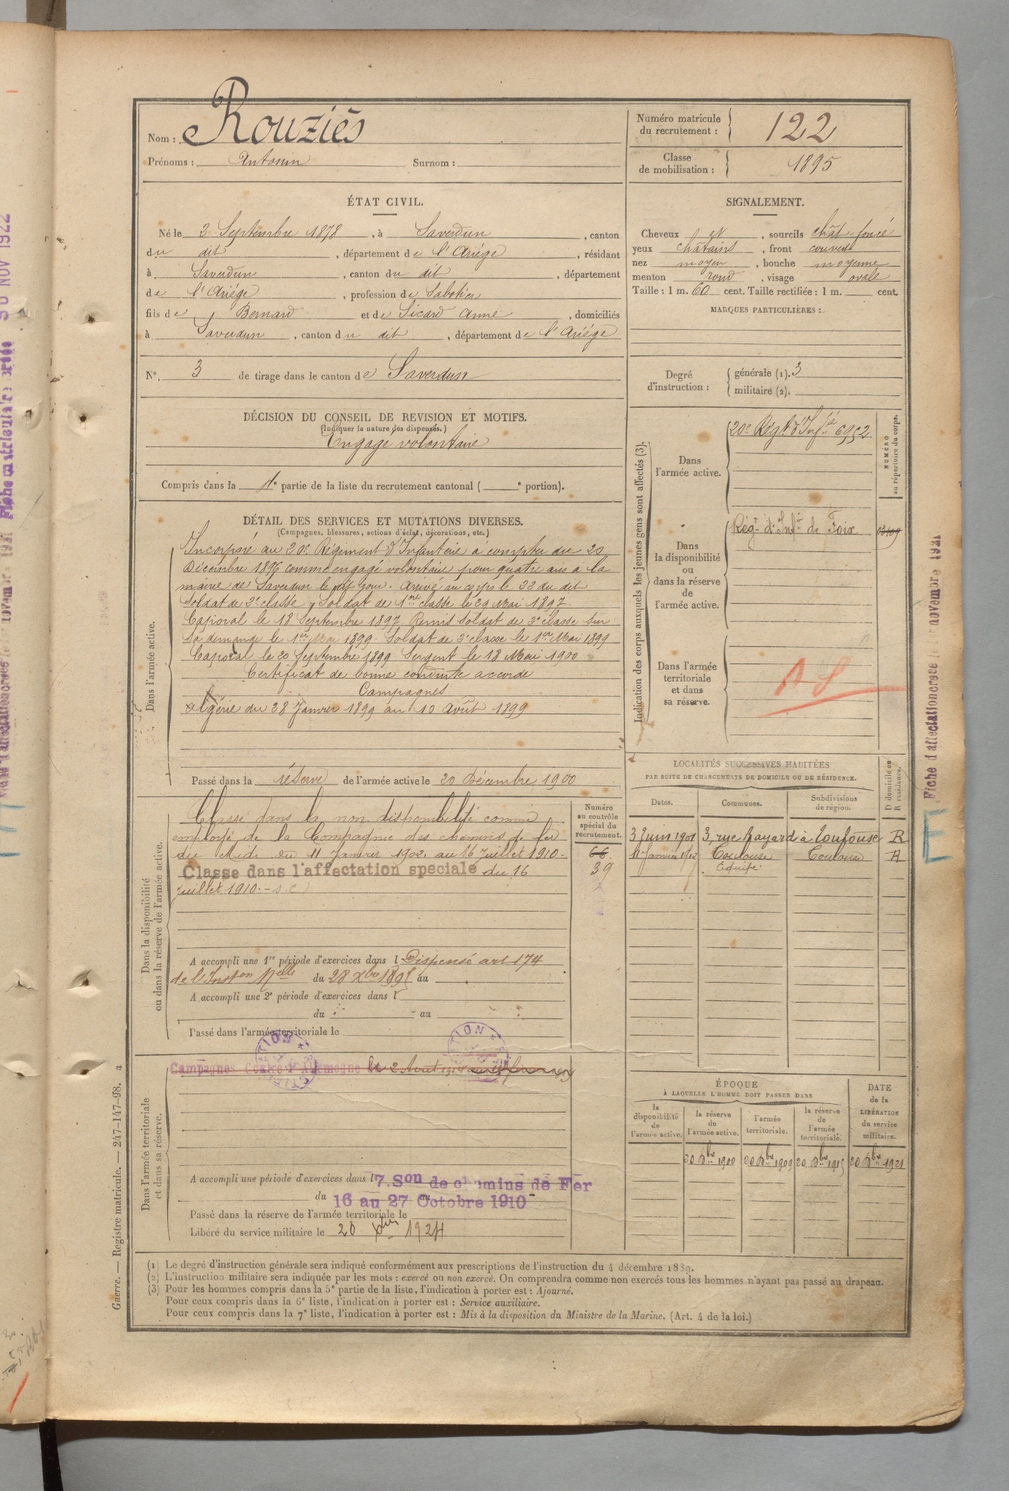 Nom : Rouziès
Prénoms : Antonin Surnom :
Numéro matricule du recrutement : 122
Classe de mobilisation : 1895
ÉTAT CIVIL.
Né le 2 Septembre 1878, à Saverdun, canton
du dit, département de l'Ariège, résidant
à Saverdun, canton du dit, département
de l'Ariège, profession de Sabotier
fils de Bernard et de Sicard Anne, domiciliés
à Saverdun, canton du dit, département de l'Ariège
N°. 3 de tirage dans le canton de Saverdun
SIGNALEMENT.
Cheveux et, sourcils chât. foncé
yeux chatains, front couvert
nez moyen, bouche moyenne
menton rond, visage ovale
Taille : 1 m. 60 cent. Taille rectifiée : 1 m. cent.
MARQUES PARTICULIÈRES :
Degré d'instruction : générale (1). 3
militaire (2).
DÉCISION DU CONSEIL DE REVISION ET MOTIFS.
(Indiquer la nature des dispenses.)
Engagé volontaire
Compris dans la 1e partie de la liste du recrutement cantonal ( e portion).
DÉTAIL DES SERVICES ET MUTATIONS DIVERSES.
(Campagnes, blessures, actions d'éclat, décorations, etc.)
Dans l'armée active.
Incorporé au 20e Régiment d'Infanterie à compter du 20
Décembre 1896 comme engagé volontaire pour quatre ans à la
mairie de Saverdun le dit jour. Arrivé au corps le 22 du dit
Soldat de 2e classe, Soldat de 1ère classe le 29 Mai 1897.
Caporal le 18 Septembre 1897. Remis soldat de 2e classe sur
sa demande le 1er Mai 1899. Soldat de 2e classe le 1er Mai 1899
Caporal le 20 Septembre 1899 Sergent le 18 Mai 1900
Certificat de bonne conduite accordé
Campagnes
Algérie du 28 Janvier 1899 au 10 Août 1899
Passé dans la réserve de l'armée active le 20 Décembre 1900
Indication des corps auxquels les jeunes gens sont affectés (3).
NUMÉRO au répertoire du corps.
Dans l'armée active.
20e Régt d'Infie 6952
Dans la disponibilité ou dans la réserve de l'armée active.
Régt d'Infie de Foix
Dans l'armée territoriale et dans sa réserve.
A S
LOCALITÉS SUCCESSIVES HABITÉES
PAR SUITE DE CHANGEMENTS DE DOMICILE OU DE RÉSIDENCE.
Dates. Communes. Subdivisions de région. D domicile ou R résidence.
3 Juin 1901 3, rue Bayard à Toulouse R
11 Janvier Toulouse Toulouse R
Dans la disponibilité ou dans la réserve de l'armée active.
Numéro au contrôle spécial du recrutement.
66
39
Classé dans la non disponibilité comme
employé de la Compagnie des chemins de fer
du Midi du 11 Janvier 1902 au 16 Juillet 1910.-
Classé dans l'affectation spéciale du 16
Juillet 1910.-
A accompli une 1re période d'exercices dans l Dispensé art 174
de l'Inston Mlle du 28 Xbre 1895 au
A accompli une 2e période d'exercices dans l
du au
Passé dans l'armée territoriale le
Dans l'armée territoriale et dans sa réserve.
Campagnes Contre l'Allemagne le 2 Août
A accompli une période d'exercices dans l 7. Son de chemins de Fer
du 16 au 27 Octobre 1910
Passé dans la réserve de l'armée territoriale le
Libéré du service militaire le 20 Xbre 1924
ÉPOQUE
À LAQUELLE L'HOMME DOIT PASSER DANS
la disponibilité de l'armée active. la réserve de l'armée active. l'armée territoriale. la réserve de l'armée territoriale.
DATE de la LIBÉRATION du service militaire.
20 Xbre 1900 20 Xbre 1909 20 Xbre 1915 20 Xbre 1921
(1) Le degré d'instruction générale sera indiqué conformément aux prescriptions de l'instruction du 4 décembre 1889.
(2) L'instruction militaire sera indiquée par les mots : exercé ou non exercé. On comprendra comme non exercés tous les hommes n'ayant pas passé au drapeau.
(3) Pour les hommes compris dans la 5e partie de la liste, l'indication à porter est : Ajourné.
Pour ceux compris dans la 6e liste, l'indication à porter est : Service auxiliaire.
Pour ceux compris dans la 7e liste, l'indication à porter est : Mis à la disposition du Ministre de la Marine. (Art. 4 de la loi.)
Guerre. — Registre matricule. — 247-147-98.
Fiche d'affectation créée le novembre 1921
30 NOV 1922
Fiche matriculaire créée